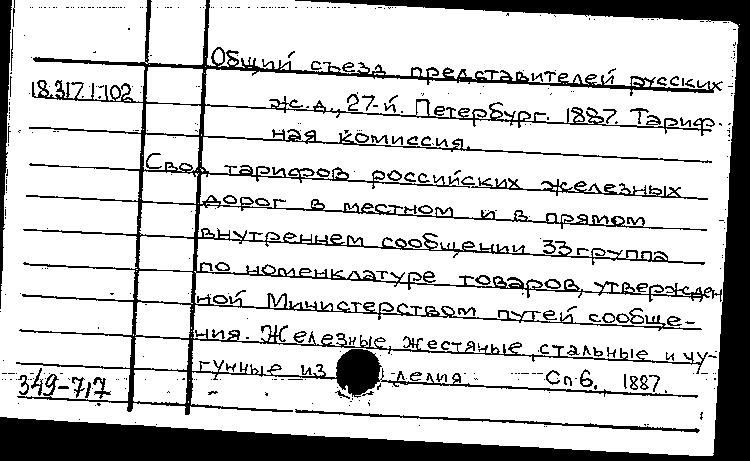 Общий съезд представителей русских
18.317.1.102
ж.д., 27-й. Петербург. 1887. Тариф-
ная комиссия.
Свод тарифов российских железных
дорог в местном и в прямом
внутреннем сообщении 33 группа
по номенклатуре товаров, утвержден
ной Министерством путей сообще-
ния. Железные, жестяные, стальные и чу-
гунные изделия. Спб., 1887.
349-717